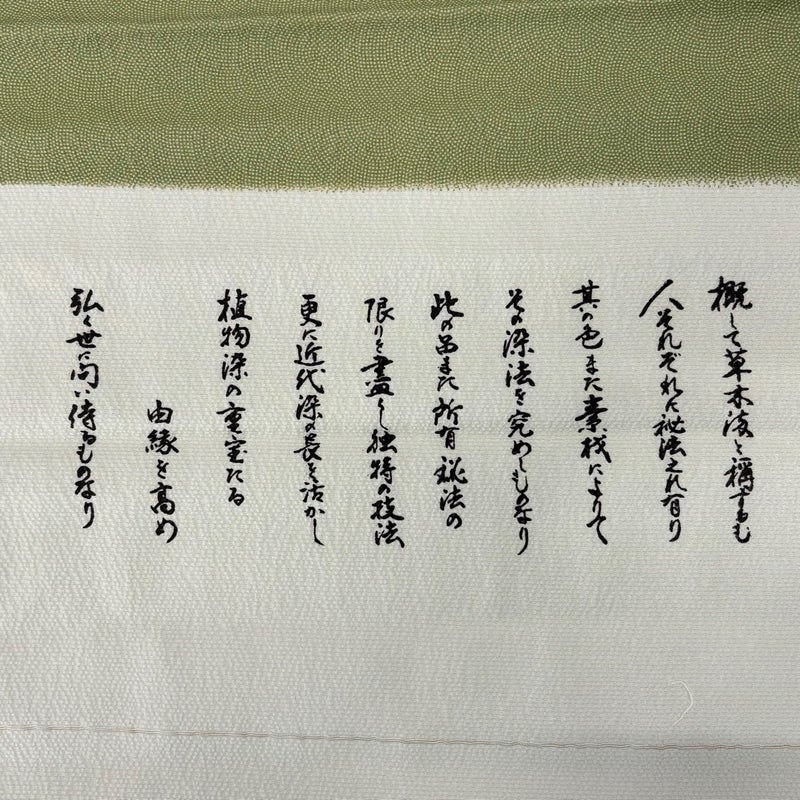 概して草木染と稱するも
人それぞれに秘法これ有り
其の色また素材によりて
その染法を究めしものなり
此の品また所有秘法の
限りを盡し独特の技法
更に近代染の長を活かし
植物染の重宝たる
由縁を高め
弘く世に問い侍るものなり